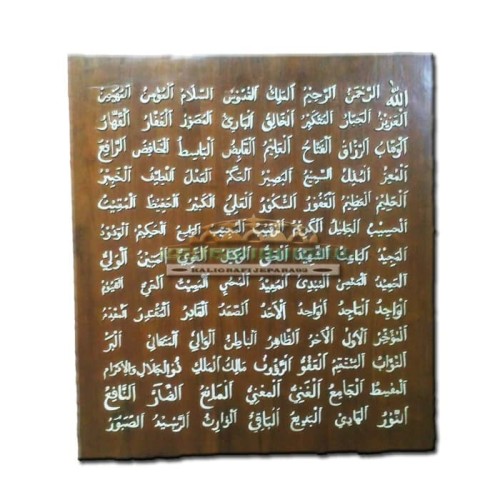 الله الرحمن الرحيم الملك القدوس السلام المؤمن المهيمن
العزيز الجبار المتكبر الخالق البارئ المصور الغفار القهار
الوهاب الرزاق الفتاح العليم القابض الباسط الخافض الرافع
المعز المذل السميع البصير الحكم العدل اللطيف الخبير
الحليم العظيم الغفور الشكور العلي الكبير الحفيظ المقيت
الحسيب الجليل الكريم الرقيب المجيب الواسع الحكيم الودود
المجيد الباعث الشهيد الحق الوكيل القوي المتين الولي
KALIGRAFI JEPARA03
الحميد المحصي المبدئ المعيد المحيي المميت الحي القيوم
الواجد الماجد الواحد الأحد الصمد القادر المقتدر المقدم
المؤخر الأول الآخر الظاهر الباطن الوالي المتعالي البر
التواب المنتقم العفو الرؤوف مالك الملك ذو الجلال والإكرام
المقسط الجامع الغني المغني المانع الضار النافع
النور الهادي البديع الباقي الوارث الرشيد الصبور